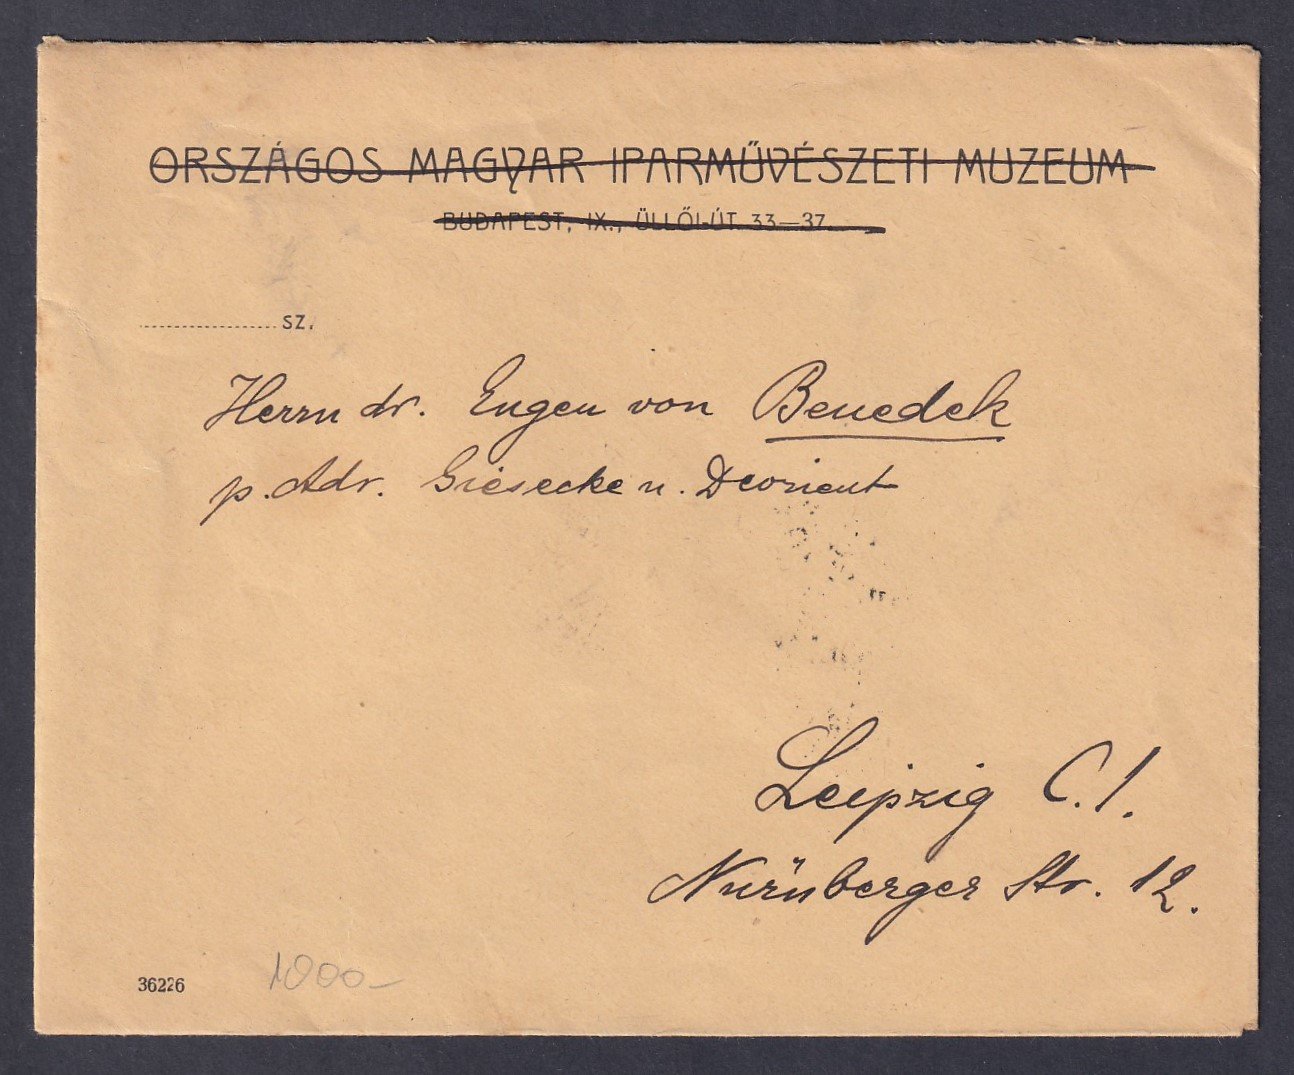 ORSZÁGOS MAGYAR IPARMŰVÉSZETI MUZEUM
BUDAPEST, IX., ÜLLŐI-ÚT 33—37.
.................... SZ.
Herrn dr. Eugen von Benedek
p. Adr. Giesecke u. Devrient
Leipzig C.1.
Nürnberger Str. 12.
36226
1000-